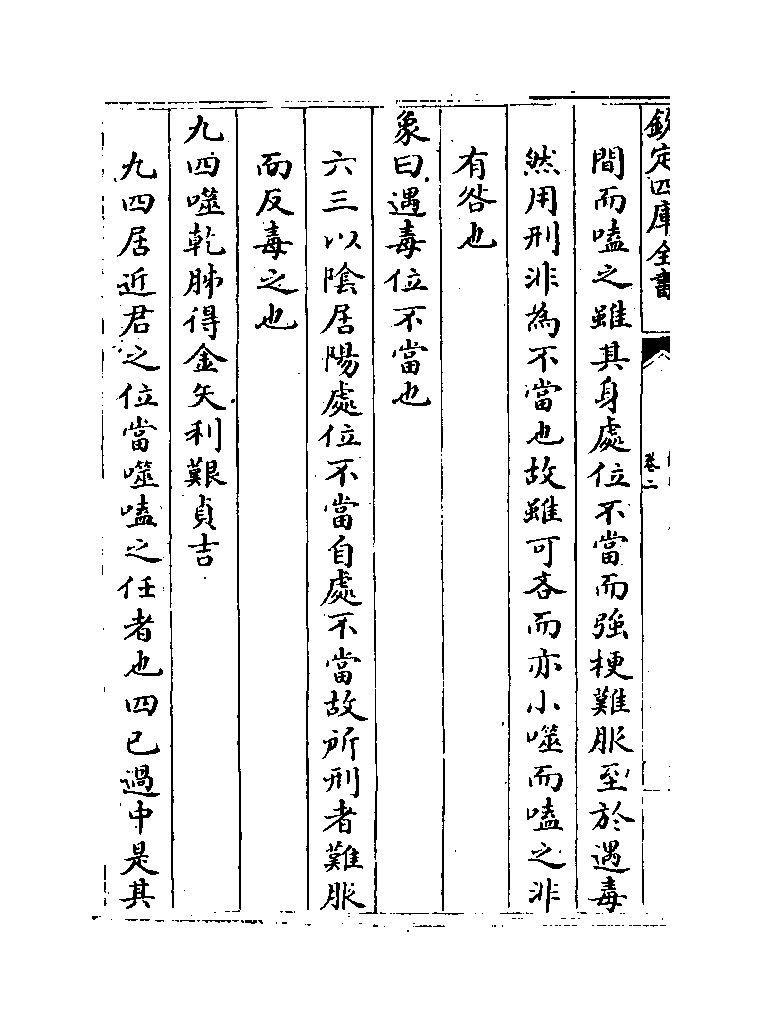 欽定四庫全書
卷二
間而嗑之雖其身處位不當而強梗難服至於遇毒
然用刑非為不當也故雖可吝而亦小噬而嗑之非
有咎也
象曰遇毒位不當也
六三以陰居陽處位不當自處不當故所刑者難服
而反毒之也
九四噬乾胏得金矢利艱貞吉
九四居近君之位當噬嗑之任者也四已過中是其